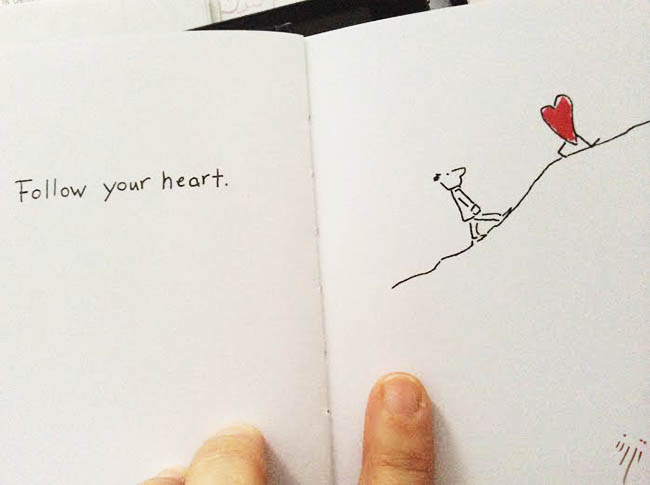 Follow your heart.